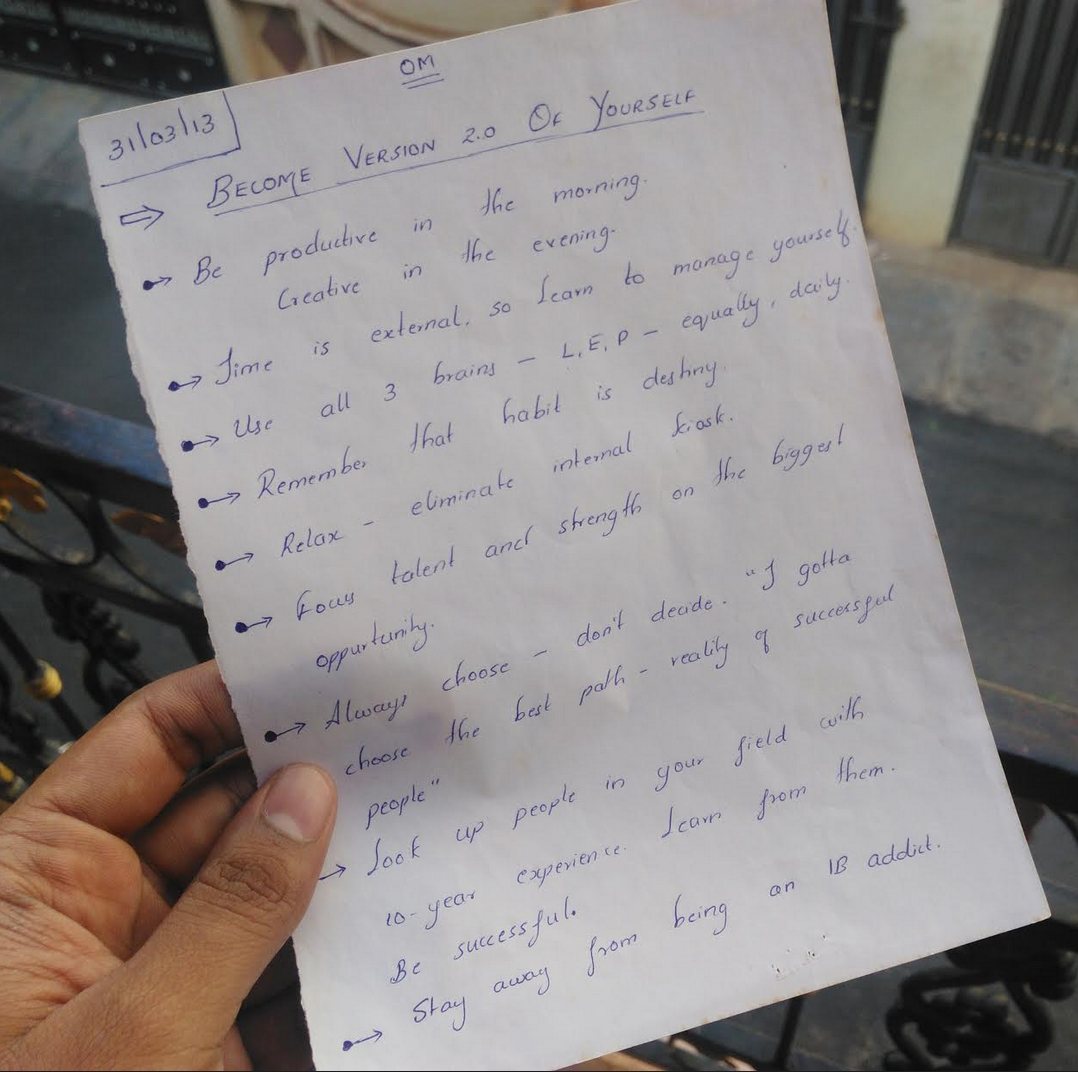 OM
31/03/13
⇒ BECOME VERSION 2.0 OF YOURSELF
→ Be productive in the morning.
Creative in the evening.
→ Time is external, so learn to manage yourself.
→ Use all 3 brains - L, E, P - equally, daily.
→ Remember that habit is destiny.
→ Relax - eliminate internal kiosk.
→ Focus talent and strength on the biggest
oppurtunity.
→ Always choose - don't decide. "I gotta
choose the best path - reality of successful
people"
→ Look up people in your field with
10-year experience. Learn from them.
Be successful.
→ Stay away from being an IB addict.